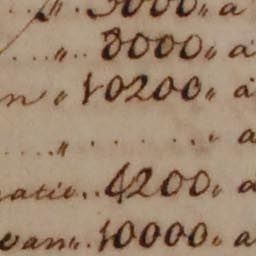 „ 3000„ a
„ 8000„ a
n „ 10200„ a
„ „ a
atie 4200„ a
van„ 10000„ a